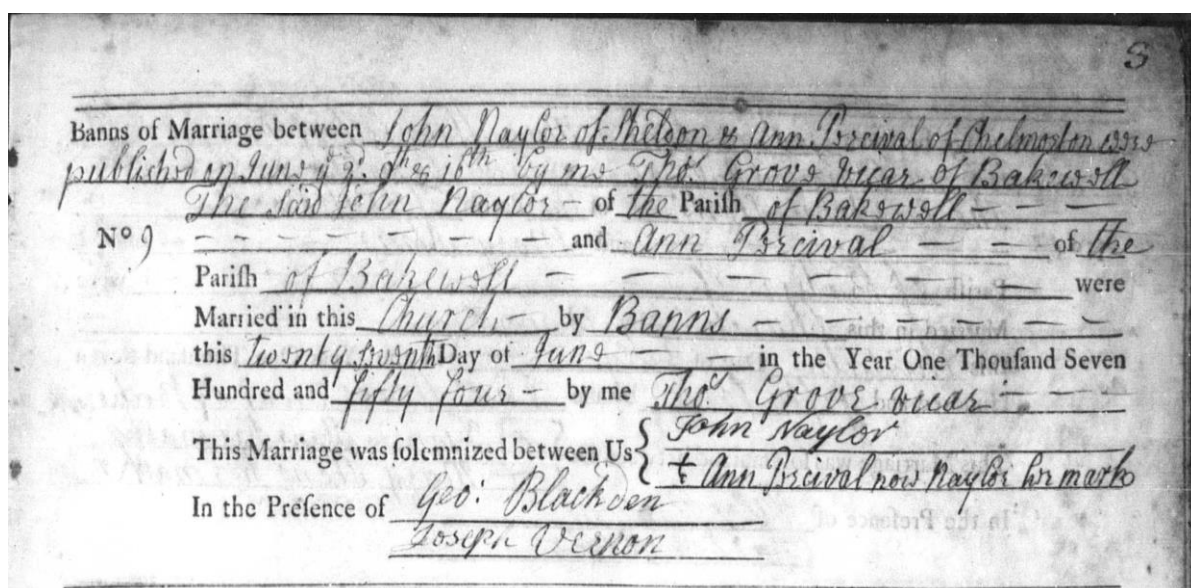 3
Banns of Marriage between John Naylor of Sheldon & Ann Percival of Chelmorton were
published on June ye 2d. 9th & 16th by me Thos Grove Vicar of Bakewell
The said John Naylor - of the Parish of Bakewell - - -
No 9 - - - - - - - and Ann Percival - - of the
Parish of Bakewell - - - - - - were
Married in this Church - by Banns - - - - -
this Twenty seventh Day of June - in the Year One Thousand Seven
Hundred and fifty four - by me Thos Grove vicar - - -
This Marriage was solemnized between Us { John Naylor
‡ Ann Percival now Naylor her mark
In the Presence of Geo: Blackden
Joseph Vernon